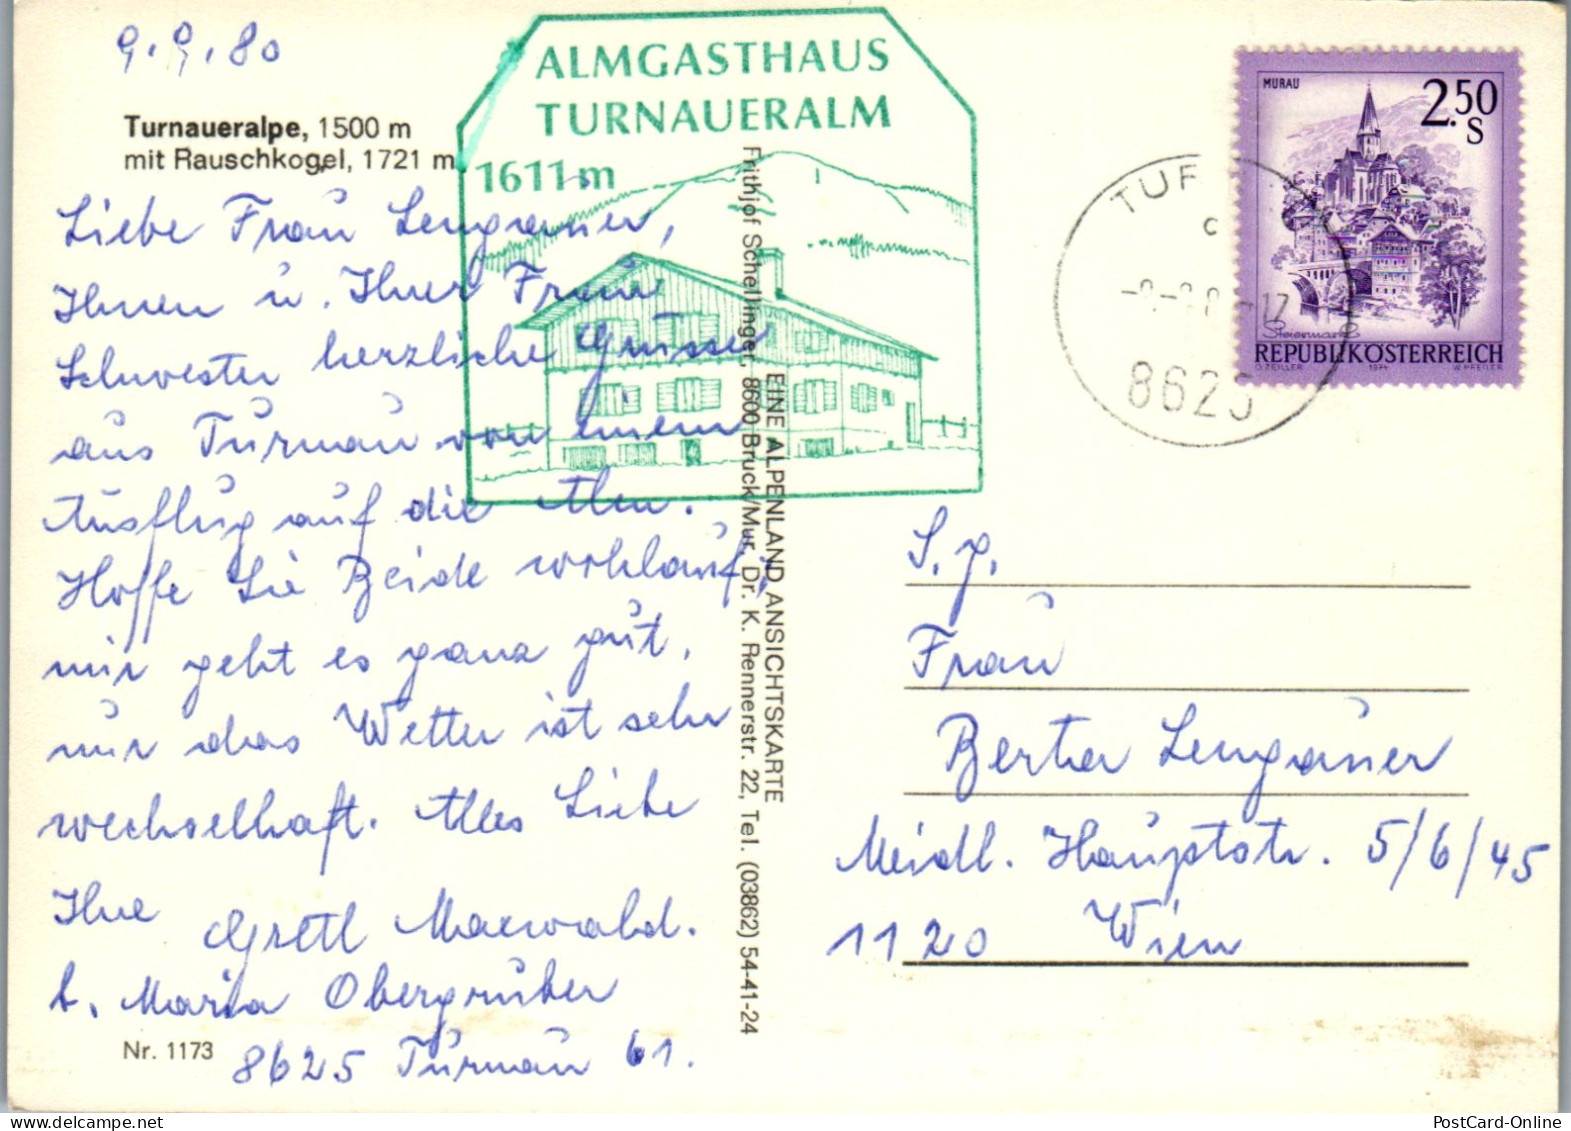 9.9.80
Turnaueralpe, 1500 m
mit Rauschkogel, 1721 m
ALMGASTHAUS
TURNAUERALM
1611 m
Liebe Frau Lengauer,
Ihnen u. Ihrer Frau
Schwester herzliche Grüsse
aus Turnau von einem
Ausflug auf die Alm.
Hoffe Sie Beide wohlauf,
mir geht es ganz gut,
nur das Wetter ist sehr
wechselhaft. Alles Liebe
Ihre Gretl
b. Maria Obergruber
8625 Turnau 61.
Nr. 1173
EINE ALPENLAND ANSICHTSKARTE
Frithjof Schellinger, 8600 Bruck/Mur, Dr. K. Rennerstr. 22, Tel. (03862) 54-41-24
MURAU
2.50
S
Steiermark
REPUBLIK ÖSTERREICH
O. ZEILLER 1974 W. PFEILER
S. g.
Frau
Berta Lengauer
Meidl. Hauptstr. 5/6/45
1120 Wien
PostCard-Online.com